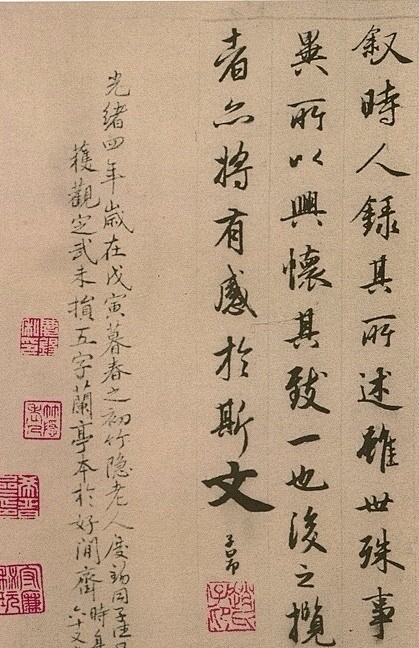 叙時人録其所述雖世殊事
異所以興懷其致一也後之攬
者亦將有感於斯文
子昂
光緒四年歲在戊寅暮春之初竹隐老人度
獲觀定武未損五字蘭亭本於好閒齋時年
六十又